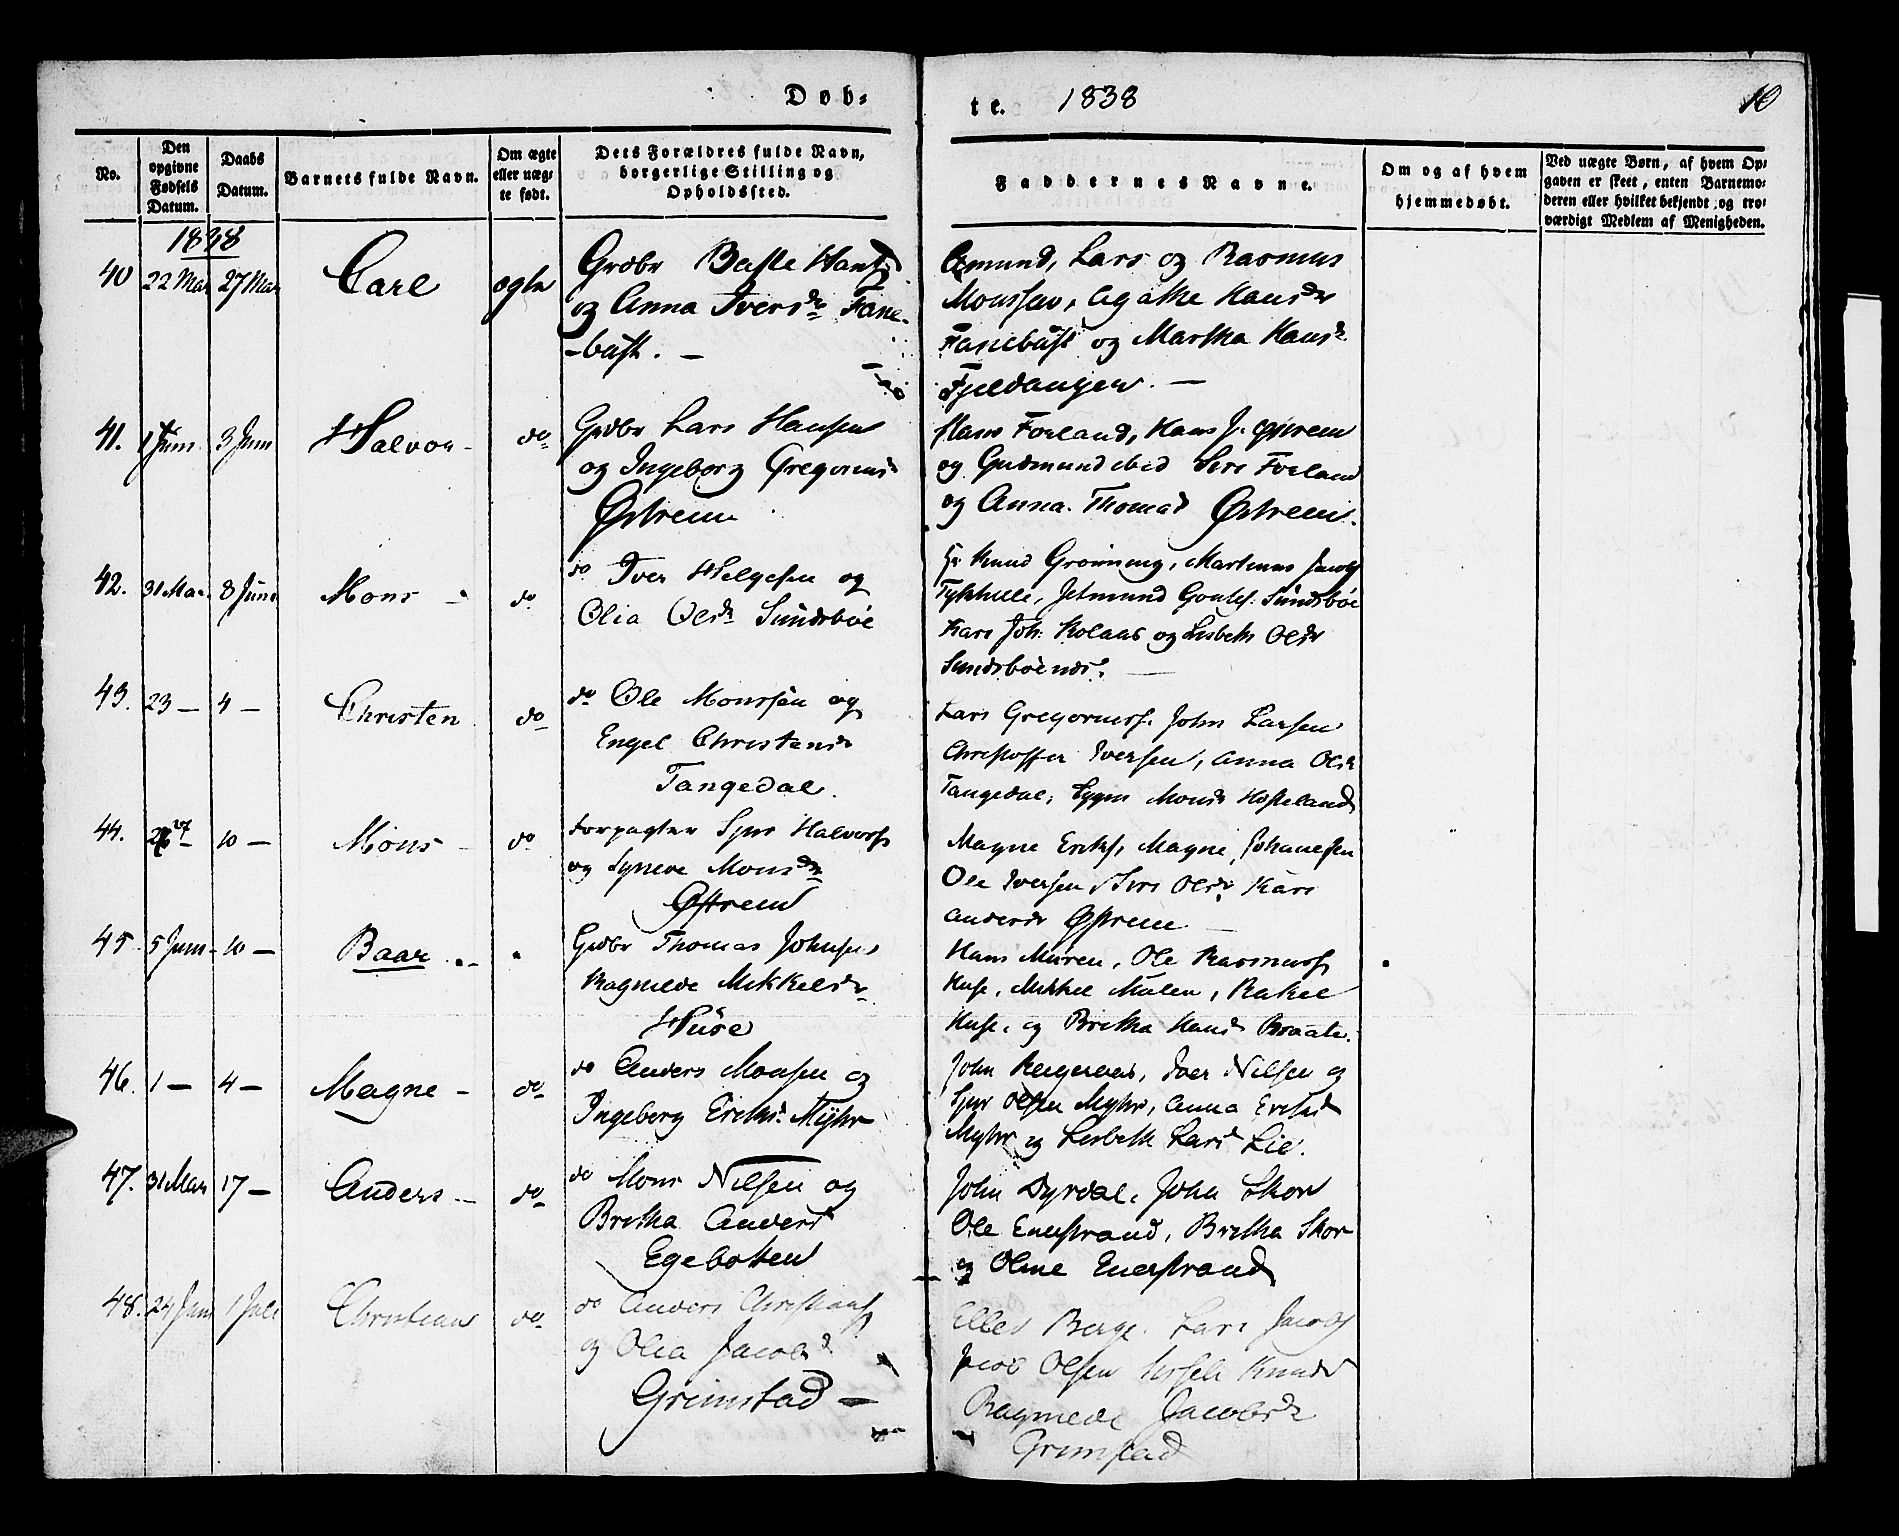 Døb-
te. 1838
10
No.
Den opgivne Fødsels Datum.
Daabs Datum.
Barnets fulde Navn.
Om ægte eller uægte født.
Dets Forældres fulde Navn, borgerlige Stilling og Opholdssted.
Faddernes Navne.
Om og af hvem hjemmedøbt.
Ved uægte Børn, af hvem Opgaven er skeet, enten Barnemoderen eller hvilket bekjendt og troværdigt Medlem af Menigheden.
1838
40 22 Mai 27 Mai Carl ægte
Grdbr Baste Hans
og Anna Iversdr Fane-
-bust. -
Amund, Lars og Rasmus
Monssen, Agathe Hansdr
Fanebust og Martha Hansdr
Fjeldanger. -
41. 1 Juni 3 Juni Halvor - do
Grdbr Lars Hansen
og Ingeborg Gregorius
Østrem
Hans Forland, Hans J. Østrem
og Gudmund ibid Siri Forland
og Anna Thomasd Østrem.
42. 31 Mai 8 Juni Mons - do
do Iver Helgesen og
Olia Olsdr Sundsbøe
Knud Grønning, Martinus Jacobs
Jetmund Sundsbøe
Kari Joh: Kolaas og Lisbeth Olsdr
Sundsbøe
43. 23 - 4 - Christen do
do Ole Monssen og
Engel Christensdr
Tangedal.
Lars Gregoriuss. John Larsen
Christoffer Iversen, Anna Olsdr
Tangedal, Monsdr Hopeland
44. 27 10 - Mons - do
Forpagter Sjur Halvors
og Syneve Monsdr
Østrem
Magne Eriks, Magne Johanessen
Ole Iversen Siri Olsdr Kari
Andersdr Østrem -
45 5 Juni - 10 - Baar -
Grdbr Thomas Johnsen
Ragnilde Mikkelsdr
Huse
Hans Muren, Ole Rasmuss
Huse, Mikkel Mulen, Rakel
Huse, og Britha Hansd Braate.
46. 1 - 4 - Magne - do
do Anders Monsen og
Ingeborg Eriksd. Myhr
John Iver Nilsen og
Sjur Olsen Myhr, Anna Eriksd
Myhr og Lisbeth Larsd Lie.
47. 31 Mai 17 - Anders - do
do Mons Nilsen og
Britha Andersd
Egebotten
John Dyrdal, John Skor
Ole Enerstrand, Britha Skor
og Oline Enerstrand
48. 24 Juni 1 Juli Christian do
do Anders Christians
og Olia Jacobsd
Grimstad -
Elles Berge. Lars Jacobs
Jacob Olsen Knudsd
Ragnilde Jacobsdr
Grimstad